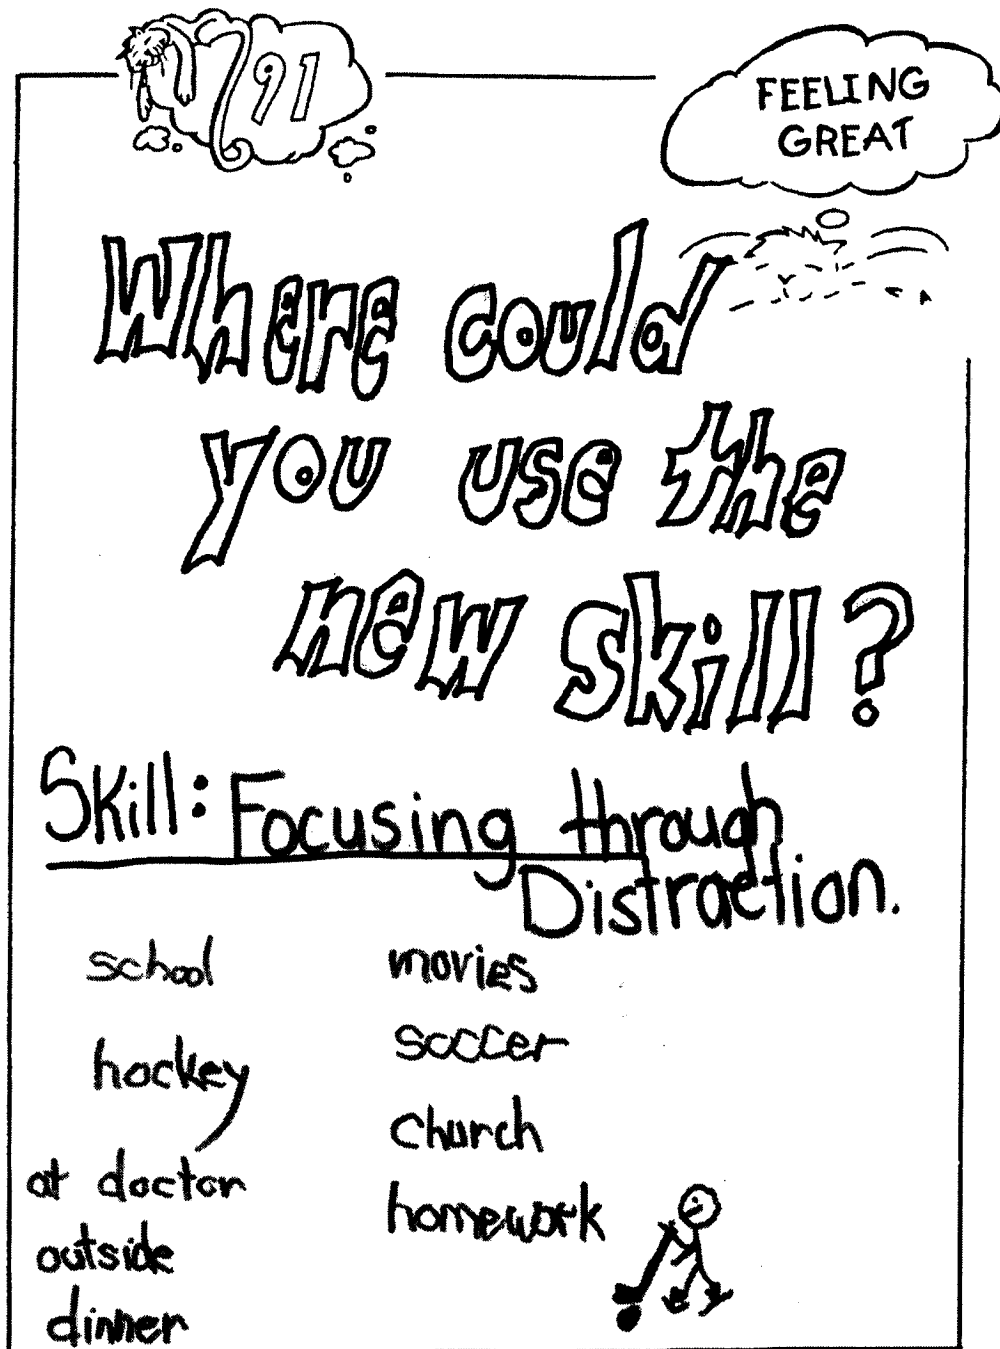 91
FEELING
GREAT
Where could
you use the
new skill?
Skill: Focusing through
Distraction.
school
hockey
at doctor
outside
dinner
movies
soccer
church
homework